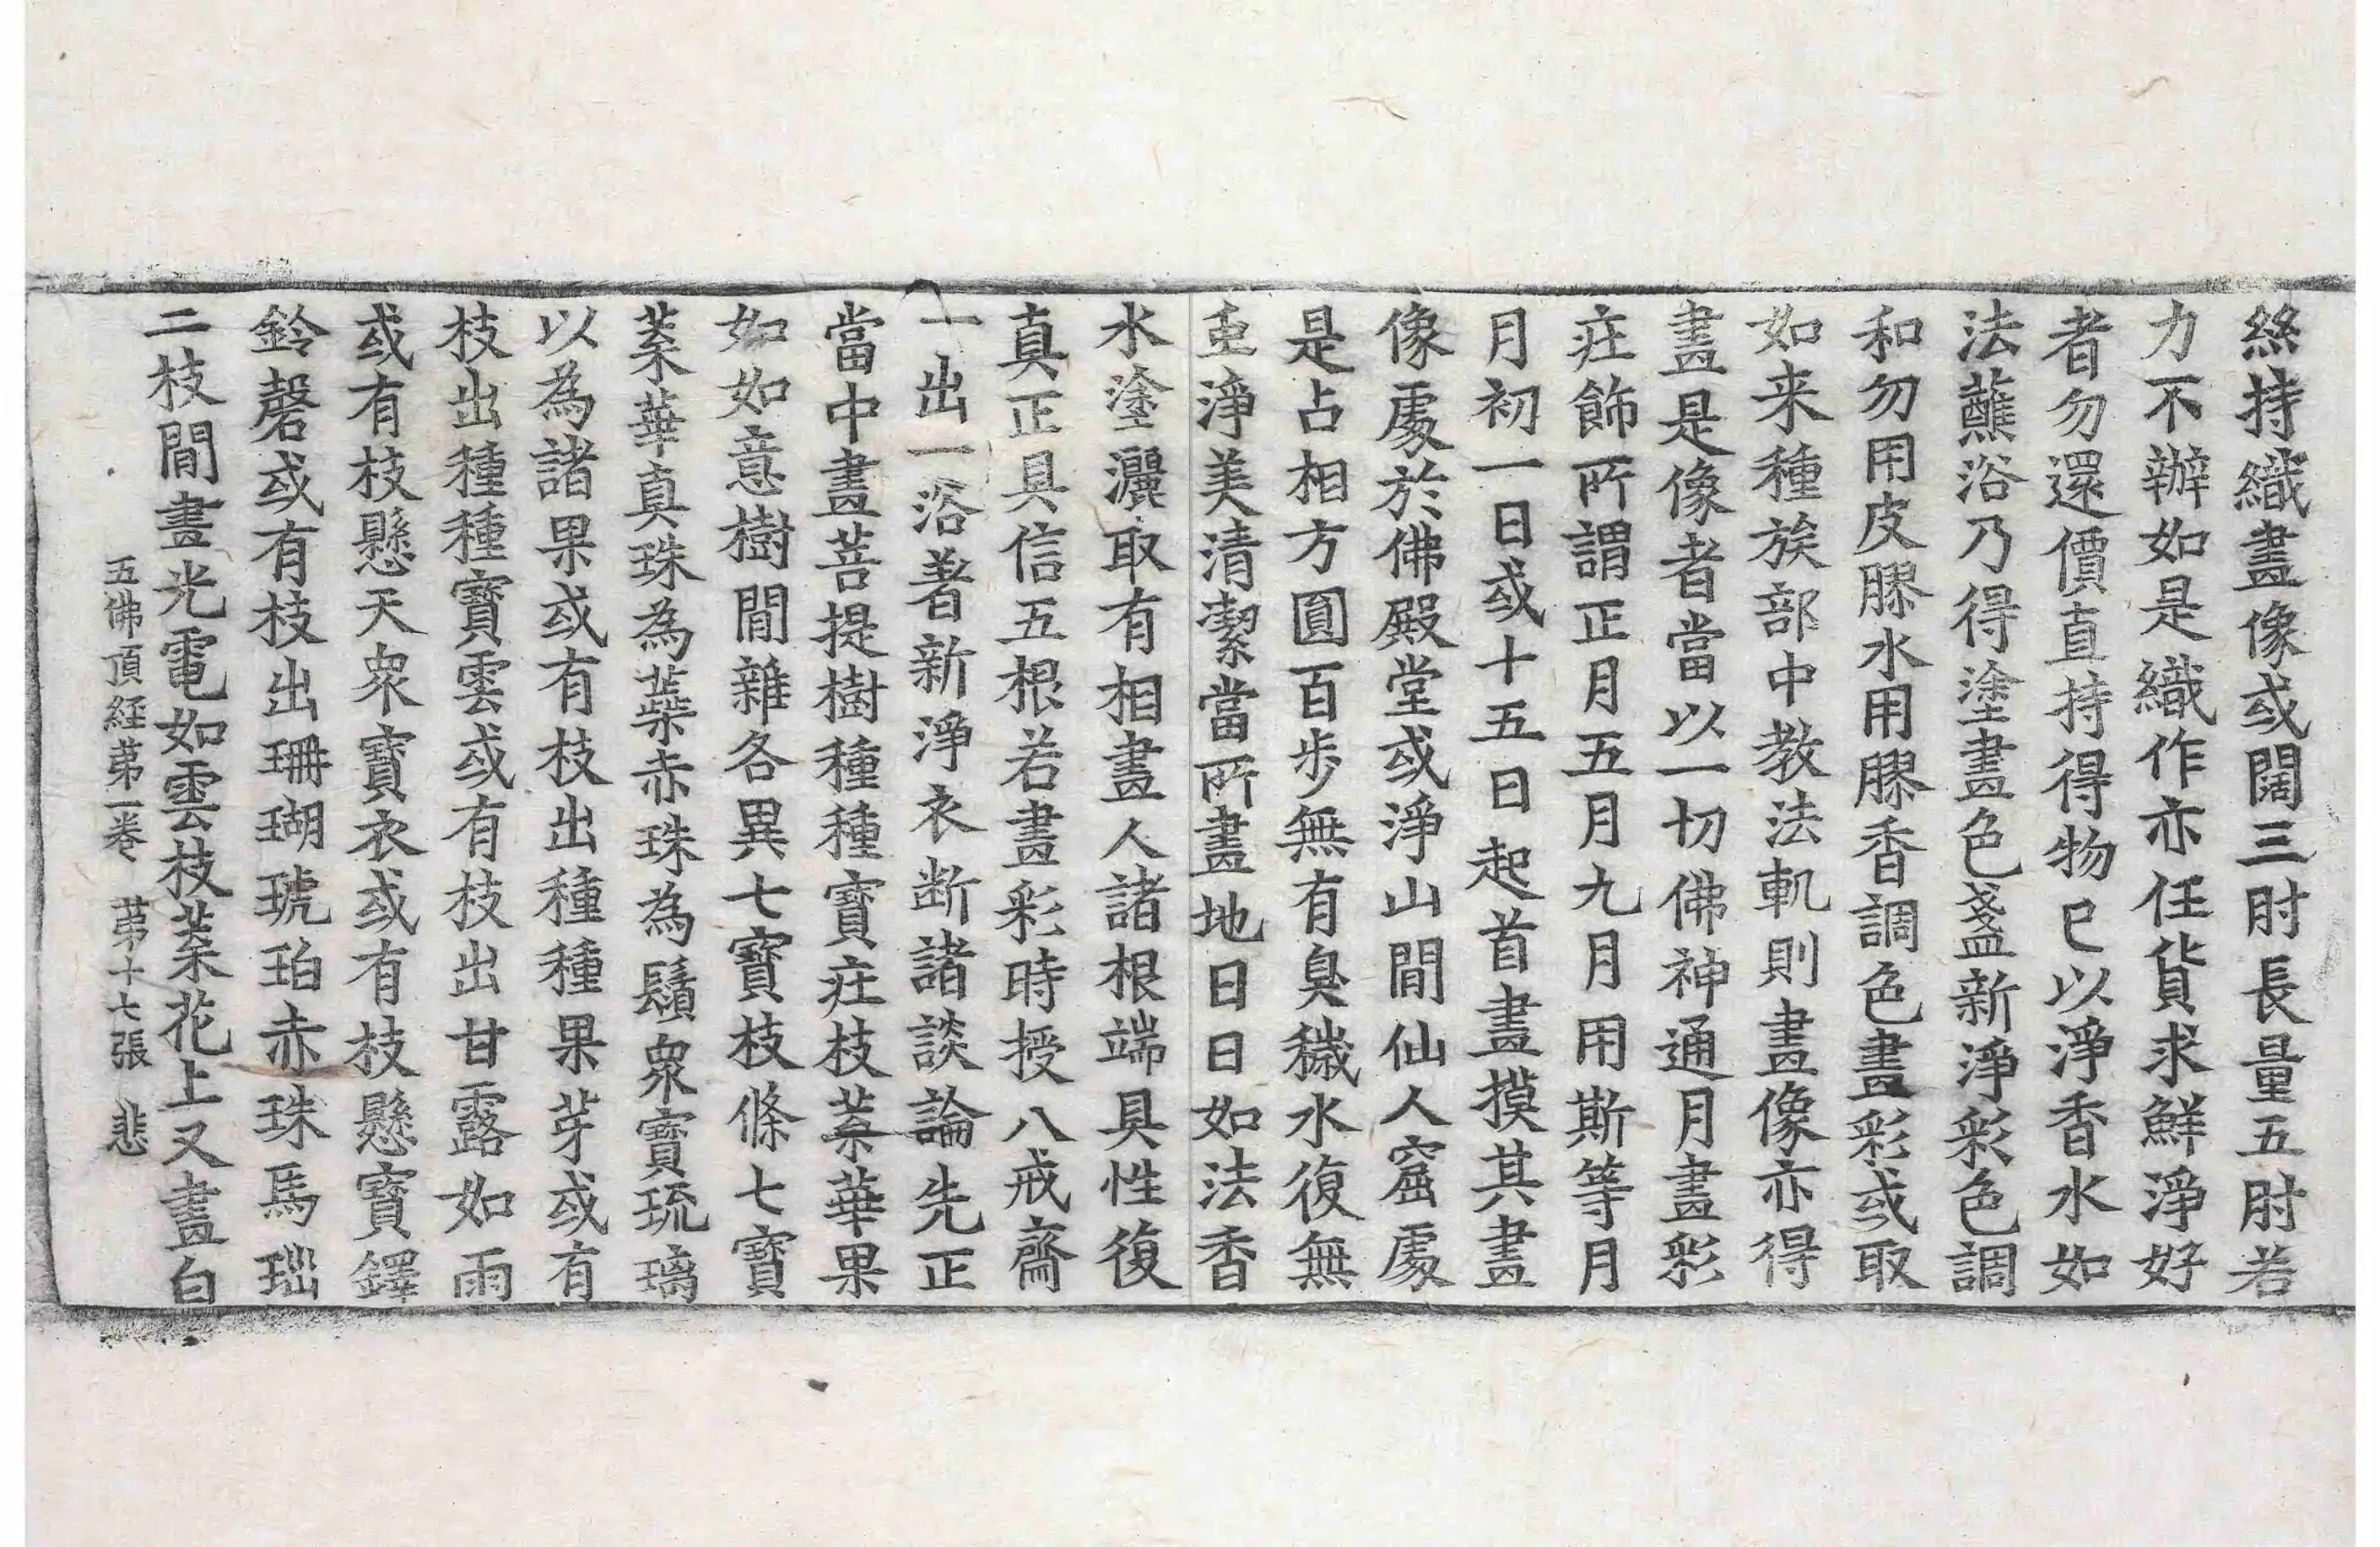 絲持織畫像或闊三肘長量五肘若
力不辦如是織作亦任貨求鮮淨好
者勿還價直持得物已以淨香水如
法蘸浴乃得塗畫色盞新淨彩色調
和勿用皮膠水用膠香調色畫彩或取
如来種族部中教法軌則畫像亦得
畫是像者當以一切佛神通月畫彩
庄飾所謂正月五月九月用斯等月
月初一日或十五日起首畫摸其畫
像處於佛殿堂或淨山間仙人窟處
是占相方圓百步無有臭穢水復無
䖝淨美清潔當所畫地日日如法香
水塗灑取有相畫人諸根端具性復
真正具信五根若畫彩時授八戒齋
一出一浴著新淨衣断諸談論先正
當中畫菩提樹種種寶庄枝葉華果
如如意樹間雜各異七寶枝條七寶
葉華真珠為蘂赤珠為鬚衆寶琉璃
以為諸果或有枝出種種果芽或有
枝出種種寶雲或有枝出甘露如雨
或有枝懸天衆寶衣或有枝懸寶鐸
鈴磬或有枝出珊瑚琥珀赤珠馬瑙
二枝間畫光電如雲枝葉花上又畫白
五佛頂經第一卷 第十七張 悲